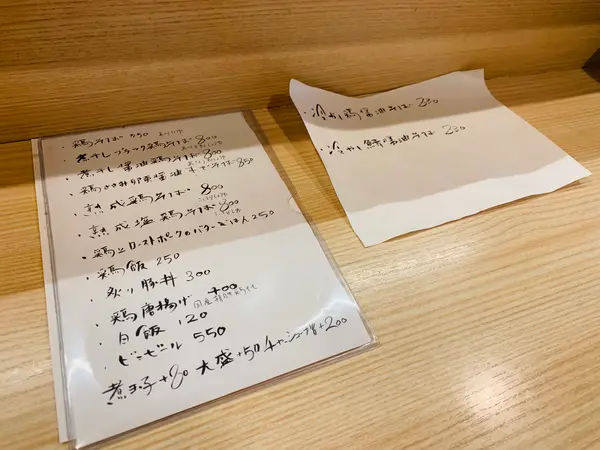 ・鶏そば 750
・煮干しブラック鶏そば 800
・煮干し醤油鶏そば 800
・鶏ささみ 醤油 そば 850
・熟成鶏そば 800
・熟成塩鶏そば 800
・鶏とローストポークのバターごはん 250
・鶏飯 250
・炙り豚丼 300
・鶏唐揚げ 400
・白飯 120
・ビンビール 550
煮玉子+80 大盛+50 チャーシュー増+200
・冷やし鶏醤油そば
・冷やし 醤油そば